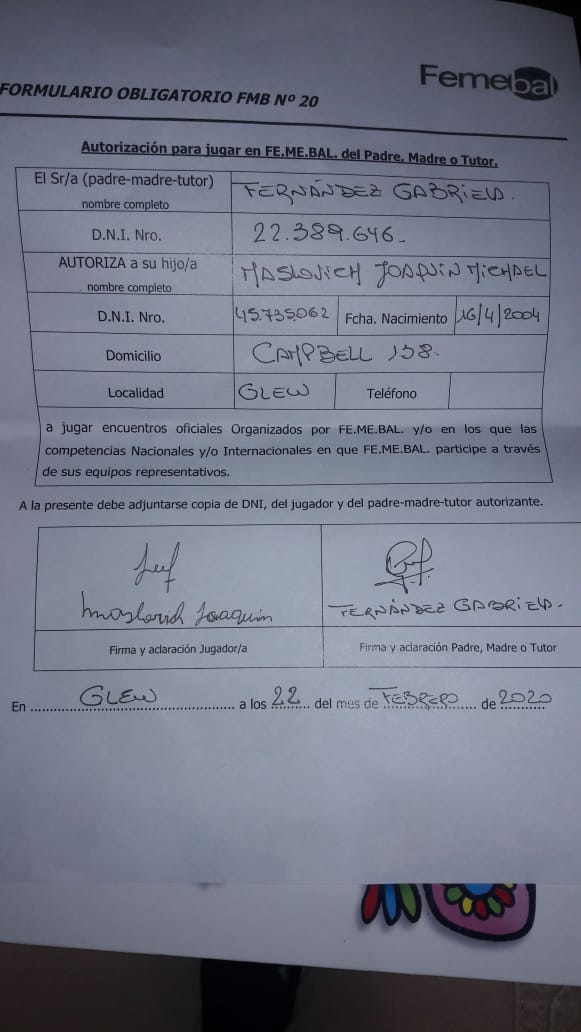 Femebal
FORMULARIO OBLIGATORIO FMB Nº 20
Autorización para jugar en FE.ME.BAL. del Padre, Madre o Tutor.
El Sr/a (padre-madre-tutor) FERNÁNDEZ GABRIELA.
nombre completo
D.N.I. Nro. 22.389.646_
AUTORIZA a su hijo/a MASLOVICH JOAQUIN MICHAEL
nombre completo
D.N.I. Nro. 45.735.062 Fcha. Nacimiento 16/4/2004
Domicilio CAMPBELL 138.
Localidad GLEW Teléfono
a jugar encuentros oficiales Organizados por FE.ME.BAL. y/o en los que las
competencias Nacionales y/o Internacionales en que FE.ME.BAL. participe a través
de sus equipos representativos.
A la presente debe adjuntarse copia de DNI, del jugador y del padre-madre-tutor autorizante.
Maslovich Joaquin FERNÁNDEZ GABRIELA.
Firma y aclaración Jugador/a Firma y aclaración Padre, Madre o Tutor
En GLEW a los 22 del mes de FEBRERO de 2020